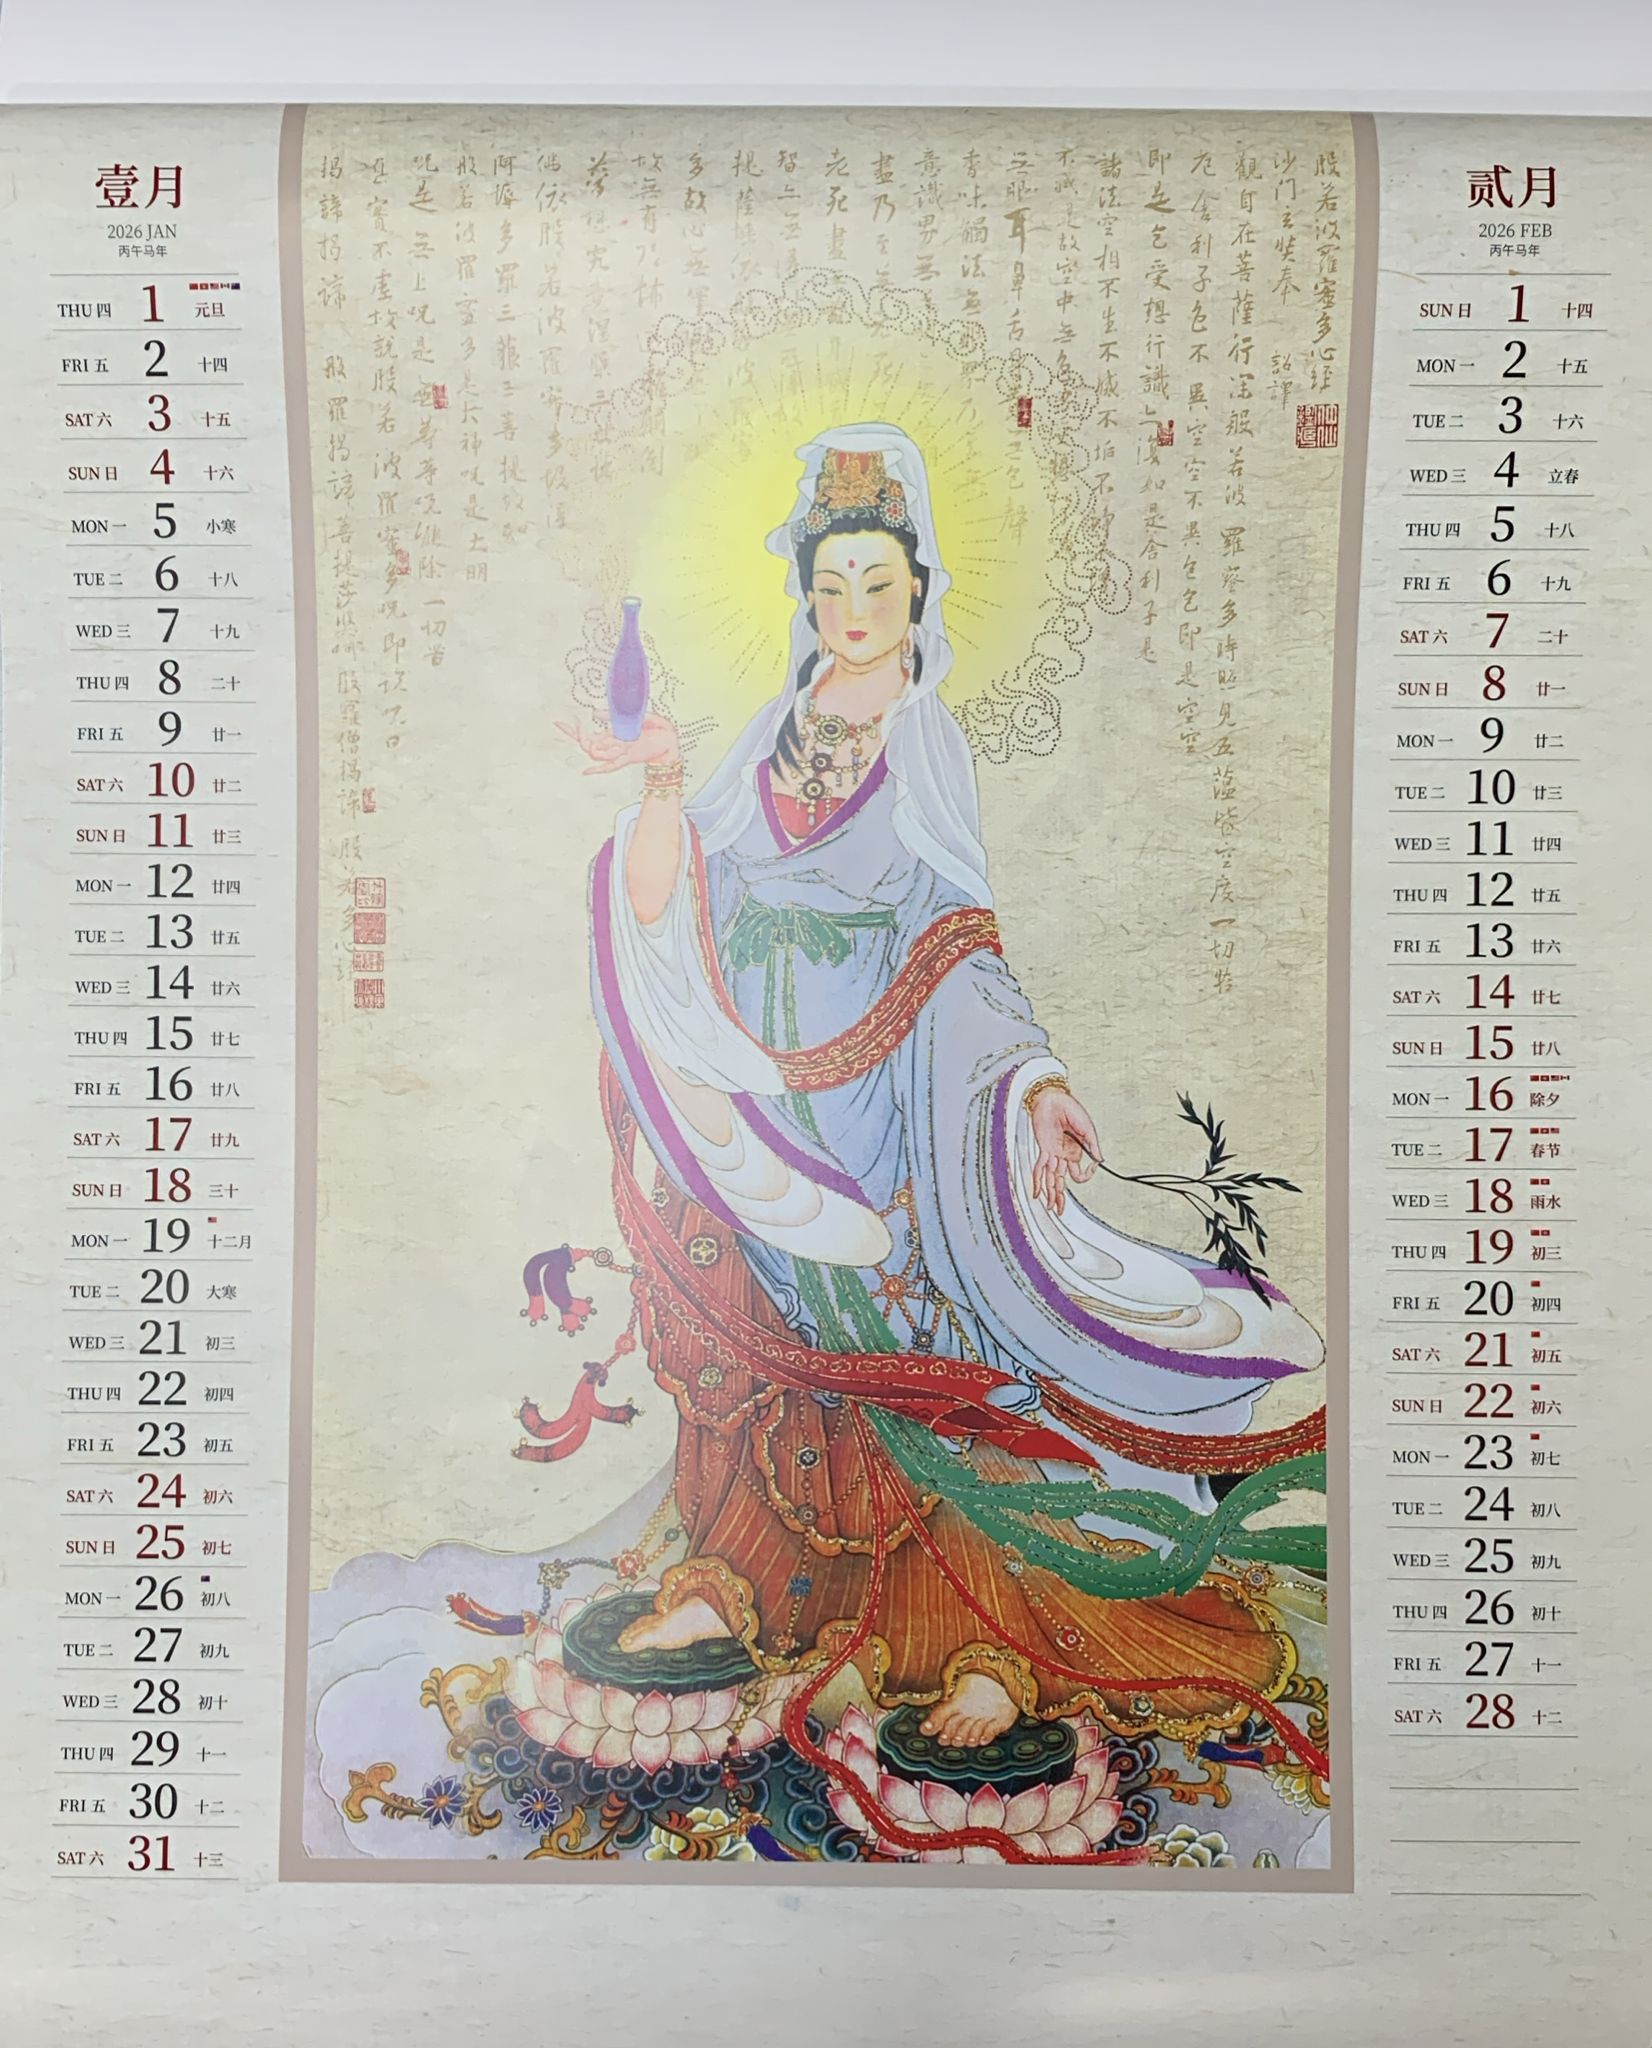 壹月
2026 JAN
丙午马年
THU 四 1 元旦
FRI 五 2 十四
SAT 六 3 十五
SUN 日 4 十六
MON 一 5 小寒
TUE 二 6 十八
WED 三 7 十九
THU 四 8 二十
FRI 五 9 廿一
SAT 六 10 廿二
SUN 日 11 廿三
MON 一 12 廿四
TUE 二 13 廿五
WED 三 14 廿六
THU 四 15 廿七
FRI 五 16 廿八
SAT 六 17 廿九
SUN 日 18 三十
MON 一 19 十二月
TUE 二 20 大寒
WED 三 21 初三
THU 四 22 初四
FRI 五 23 初五
SAT 六 24 初六
SUN 日 25 初七
MON 一 26 初八
TUE 二 27 初九
WED 三 28 初十
THU 四 29 十一
FRI 五 30 十二
SAT 六 31 十三
般若波羅蜜多心経
沙门玄奘奉 詔譯
觀自在菩薩行深般若波羅蜜多時照見五蕴皆空度一切苦
厄舍利子色不異空空不異色色即是空空
即是色受想行識亦復如是舍利子是
諸法空相不生不滅不垢不淨
不減是故空中無色
无眼耳鼻舌身意无色聲
香味觸法無眼界乃至無
意識界無
盡乃至無老死
老死盡
智亦無得
提薩埵依般若波羅蜜
多故心無罣
故無有恐怖遠離顛倒
夢想究竟涅槃三世諸
佛依般若波羅蜜多故得
阿耨多羅三藐三菩提故知
般若波羅蜜多是大神咒是大明
咒是無上咒是無等等咒能除一切苦
真實不虚故說般若波羅蜜多咒即说咒曰
揭諦揭諦 般羅揭諦 菩提莎婆呵 般羅僧揭諦 般若多心経
贰月
2026 FEB
丙午马年
SUN 日 1 十四
MON 一 2 十五
TUE 二 3 十六
WED 三 4 立春
THU 四 5 十八
FRI 五 6 十九
SAT 六 7 二十
SUN 日 8 廿一
MON 一 9 廿二
TUE 二 10 廿三
WED 三 11 廿四
THU 四 12 廿五
FRI 五 13 廿六
SAT 六 14 廿七
SUN 日 15 廿八
MON 一 16 除夕
TUE 二 17 春节
WED 三 18 雨水
THU 四 19 初三
FRI 五 20 初四
SAT 六 21 初五
SUN 日 22 初六
MON 一 23 初七
TUE 二 24 初八
WED 三 25 初九
THU 四 26 初十
FRI 五 27 十一
SAT 六 28 十二